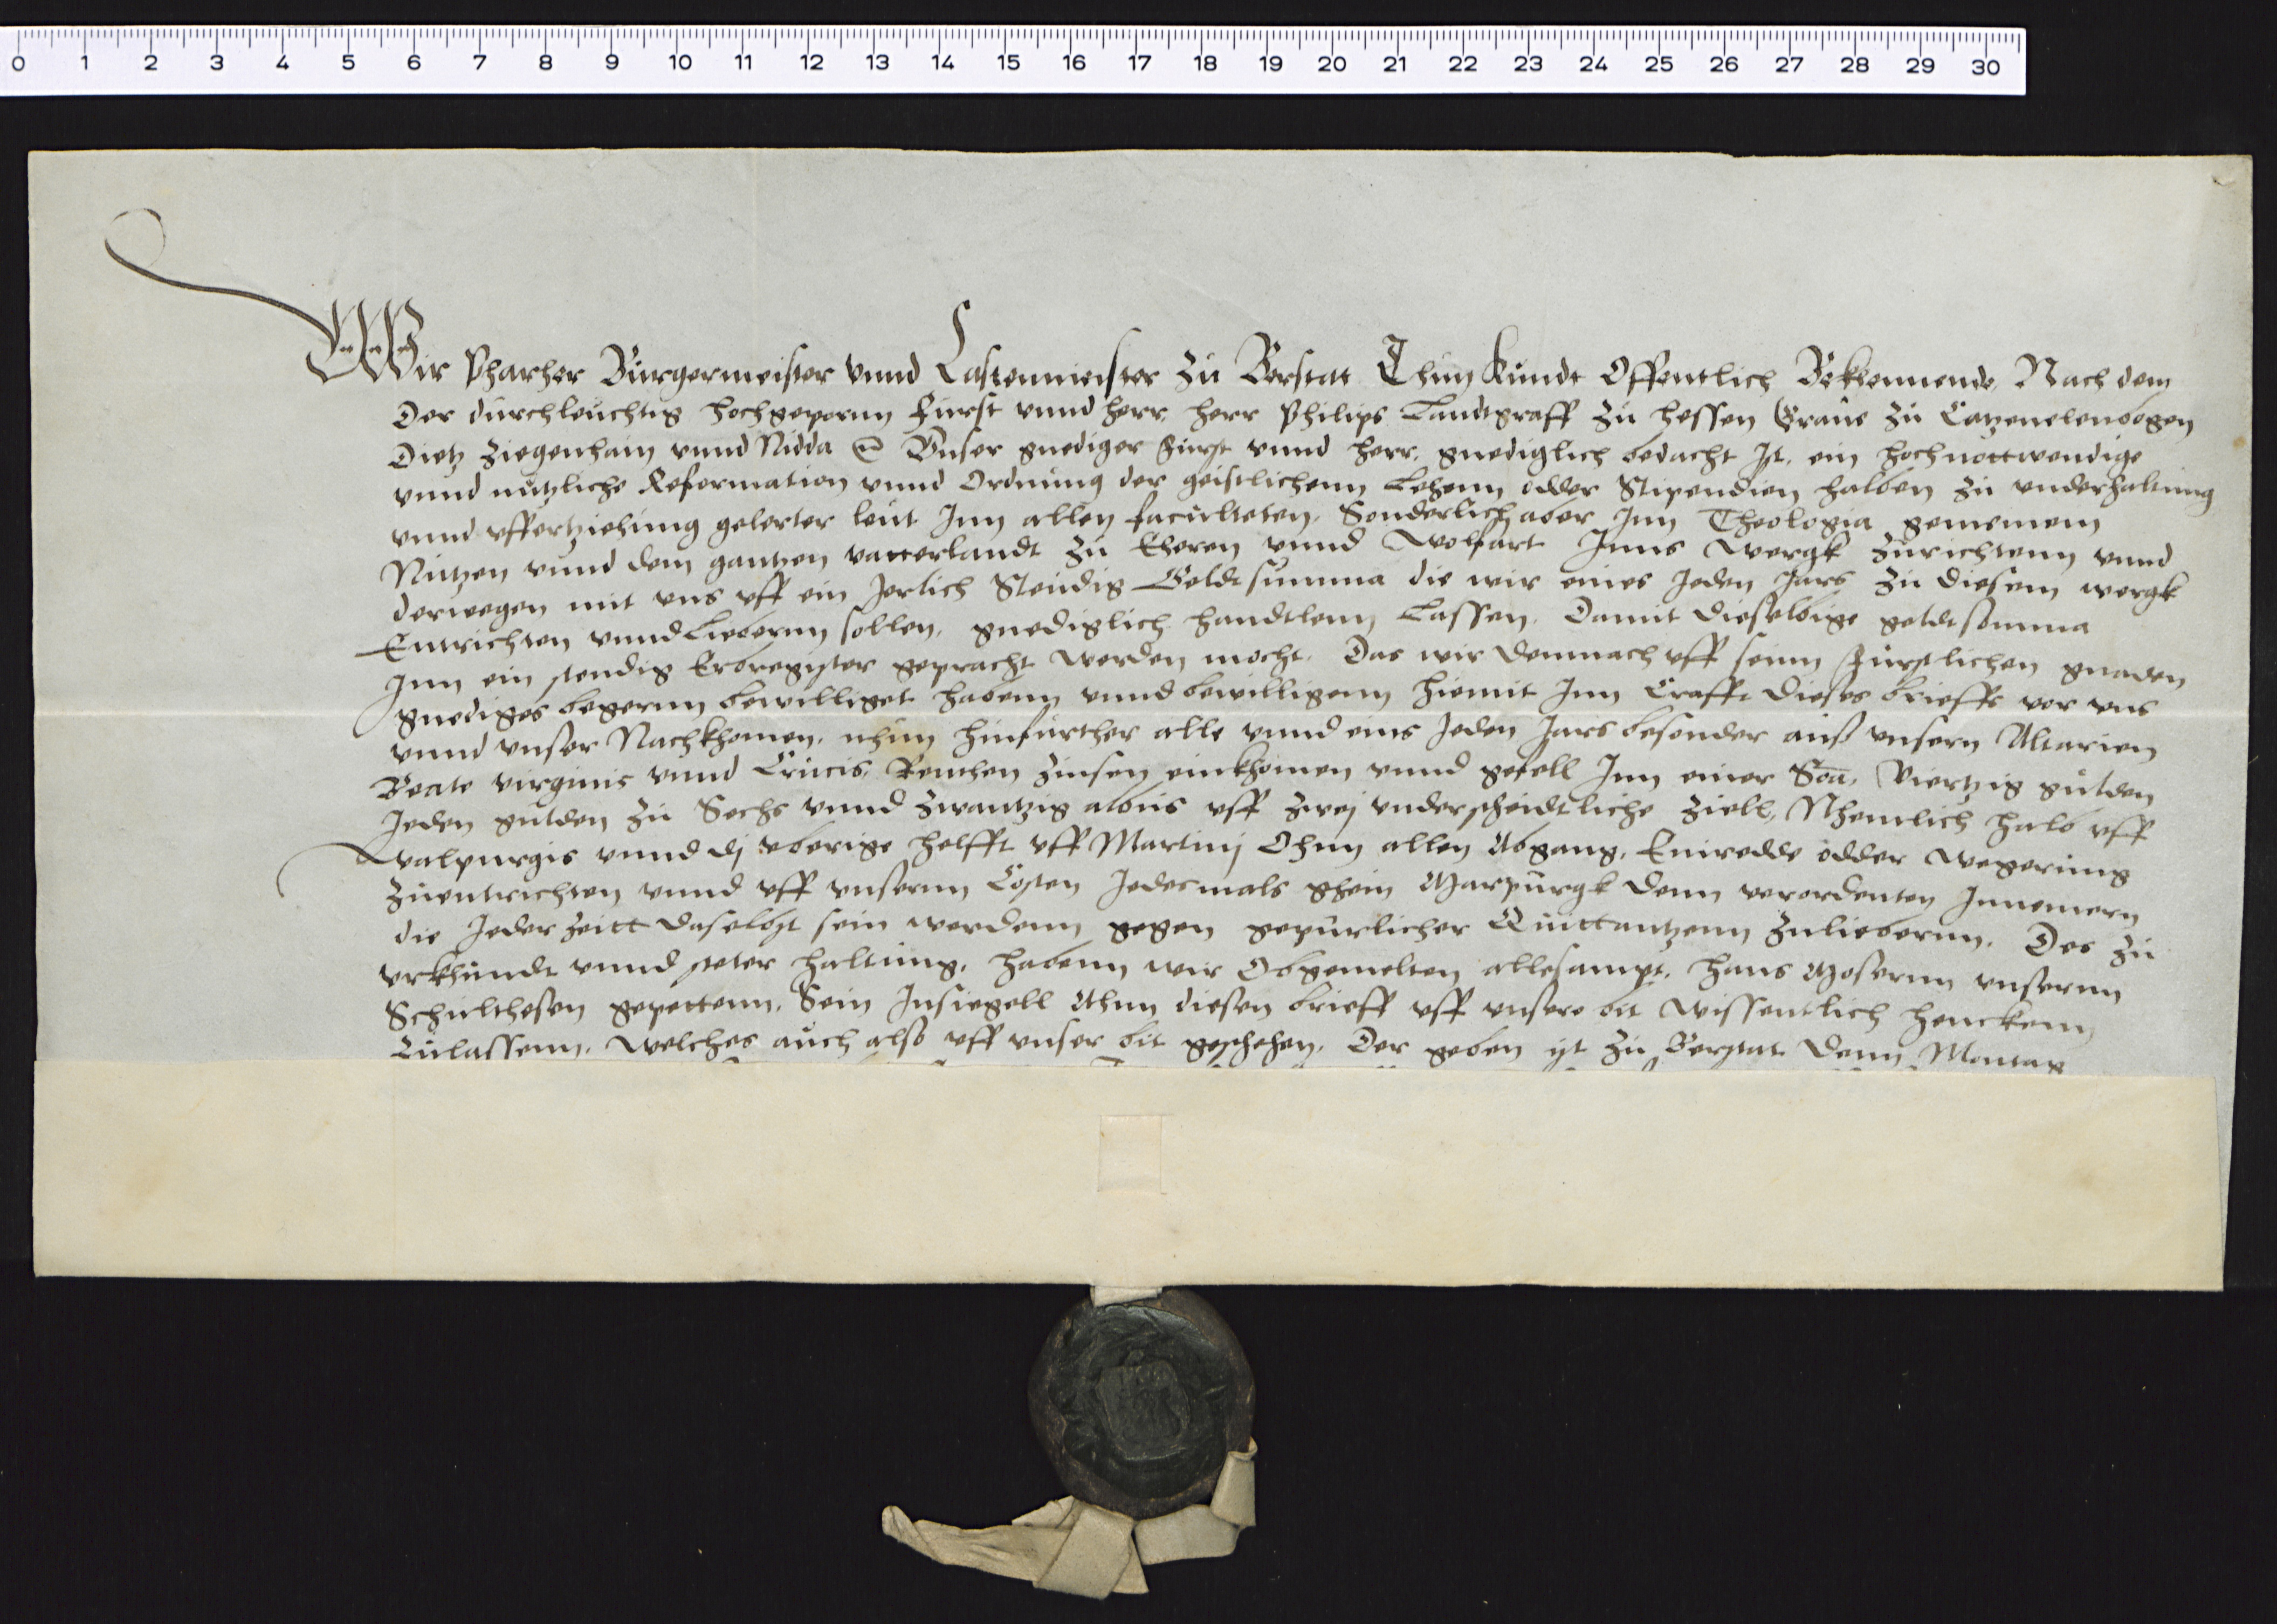 0 1 2 3 4 5 6 7 8 9 10 11 12 13 14 15 16 17 18 19 20 21 22 23 24 25 26 27 28 29 30
Wir Pharher Burgermeister vnnd Castenmeister zu Berstat Thun Kundt Offentlich Bekhennende, Nach dem
Der durchleuchtig hochgepornn Furst vnnd herr, herr Philips Landtgraff zu Hessen Graue zu Catzenelenbogen
Dietz Ziegenhain vnnd Nidda &c Vnser gnediger Furst vnnd herr, gnediglich bedacht Jst, ein hochnottwendige
vnnd nutzliche Reformation vnnd Ordnung der geistlichenn Lehenn odder Stipendien halben zu vnderhaltung
vnnd vffertziehung gelerter leut Jnn allen faculteten, Sonderlich aber Jnn Theologia gemeinem
Nutzen vnnd dem gantzen vatterlandt zu Eheren vnnd Wolfart Jnns Wergk zurichtenn vnnd
derwegen mit vns vff ein Jerlich Stendig Geldtsumma die wir eines Jeden Jars zu diesem wergk
Entrichten vnnd Liebernn sollen, gnediglich handtlenn Lassen, Damit dieselbige geldtsomma
Jnn ein stendig Erbregister gepracht werden mocht, Das wir demnach vff seinn Furstlichen gnaden
gnediges begernn bewilliget habenn vnnd bewilligenn hiemit Jnn Crafft dieses brieffs vor vns
vnnd vnser Nachkhomen, nhun hinfurther alle vnnd eins Jeden Jars besonder auß vnsern Altarien
Beate virginis vnnd Crucis, Renthen Zinsen einkhomen vnnd gefell Jnn einer Soa, Viertzig gulden
Jeden gulden zu Sechs vnnd zwantzig albus vff zwej vnderscheidtliche Ziell, Nhemlich halb vff
Walpurgis vnnd dj vberige helfft vff Martinj Ohnn allen Abgang, Einredde odder Wegerung
Zuentrichten vnnd vff vnsernn Costen Jedesmals ghein Marpurgk denn verordenten Jnnemern
die Jeder Zeitt daselbst sein werdenn gegen gepurlicher Quittantzenn Zulieberenn, Des zu
vrkhundt vnnd steter haltung, habenn wir Obgemelten allesampt, Hans Mosernn vnsernn
Schultheßen gepettenn, Sein Jnsiegell Ahnn diesen brieff vff vnsere bit Wissentlich henckenn
Zulassenn, Welches auch also vff vnser bit geschehen, Der geben ist zu Berstat Denn Montag